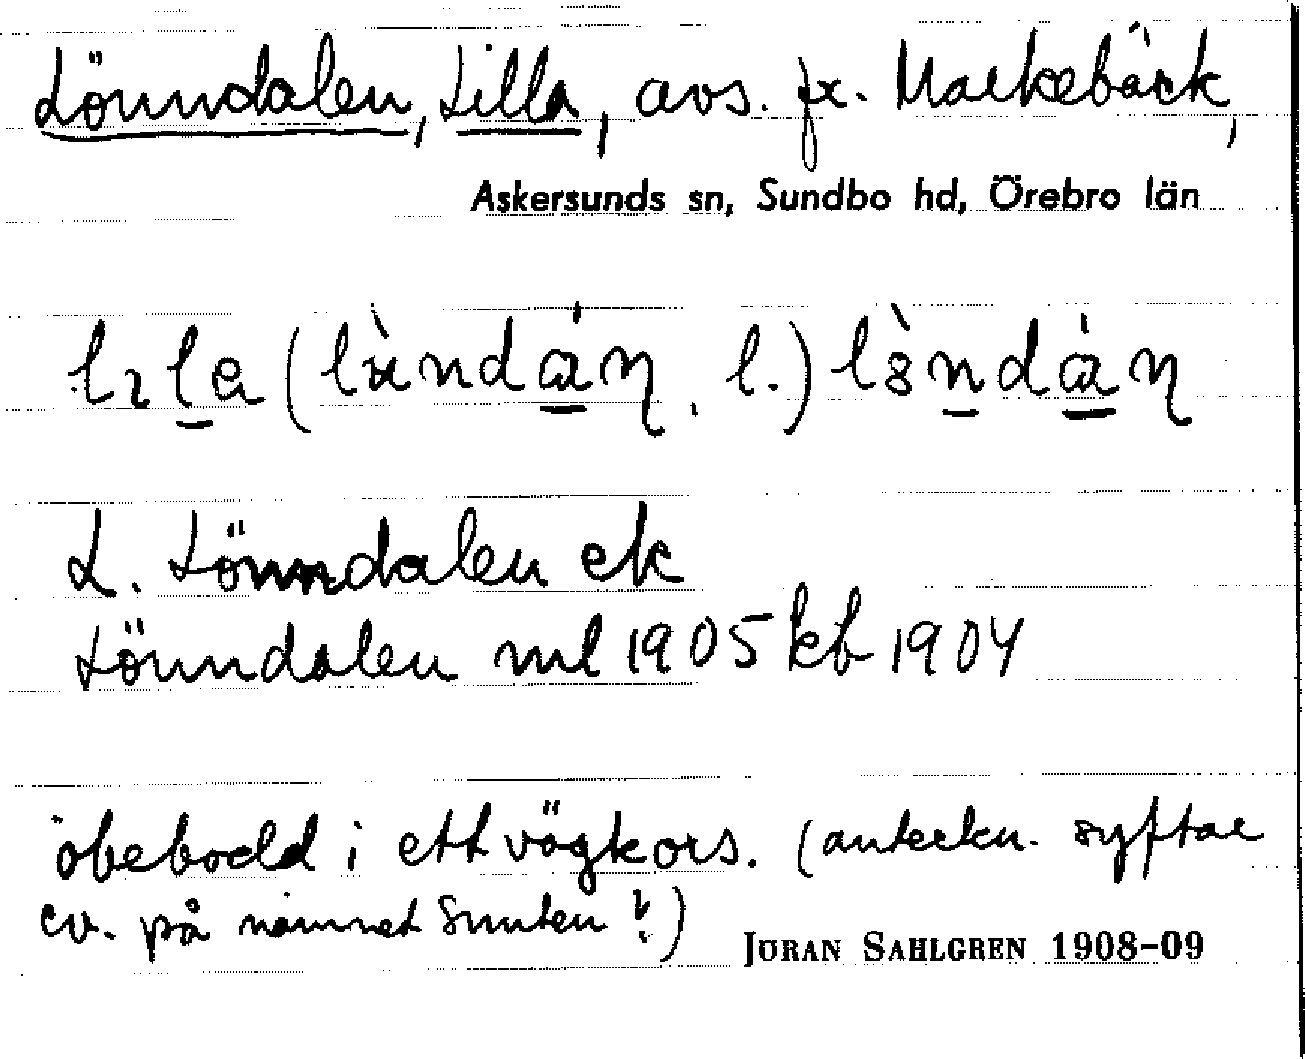 Lönndalen, Lilla, avs. fr. Markebäck,
Askersunds sn, Sundbo hd, Örebro län
L. Lönndalen ek
Lönndalen ml 1905 kb 1904
obebodd i ett vägkors. (anteckn. syftar
ev. på namnet Smuten?)
JÖRAN SAHLGREN 1908-09